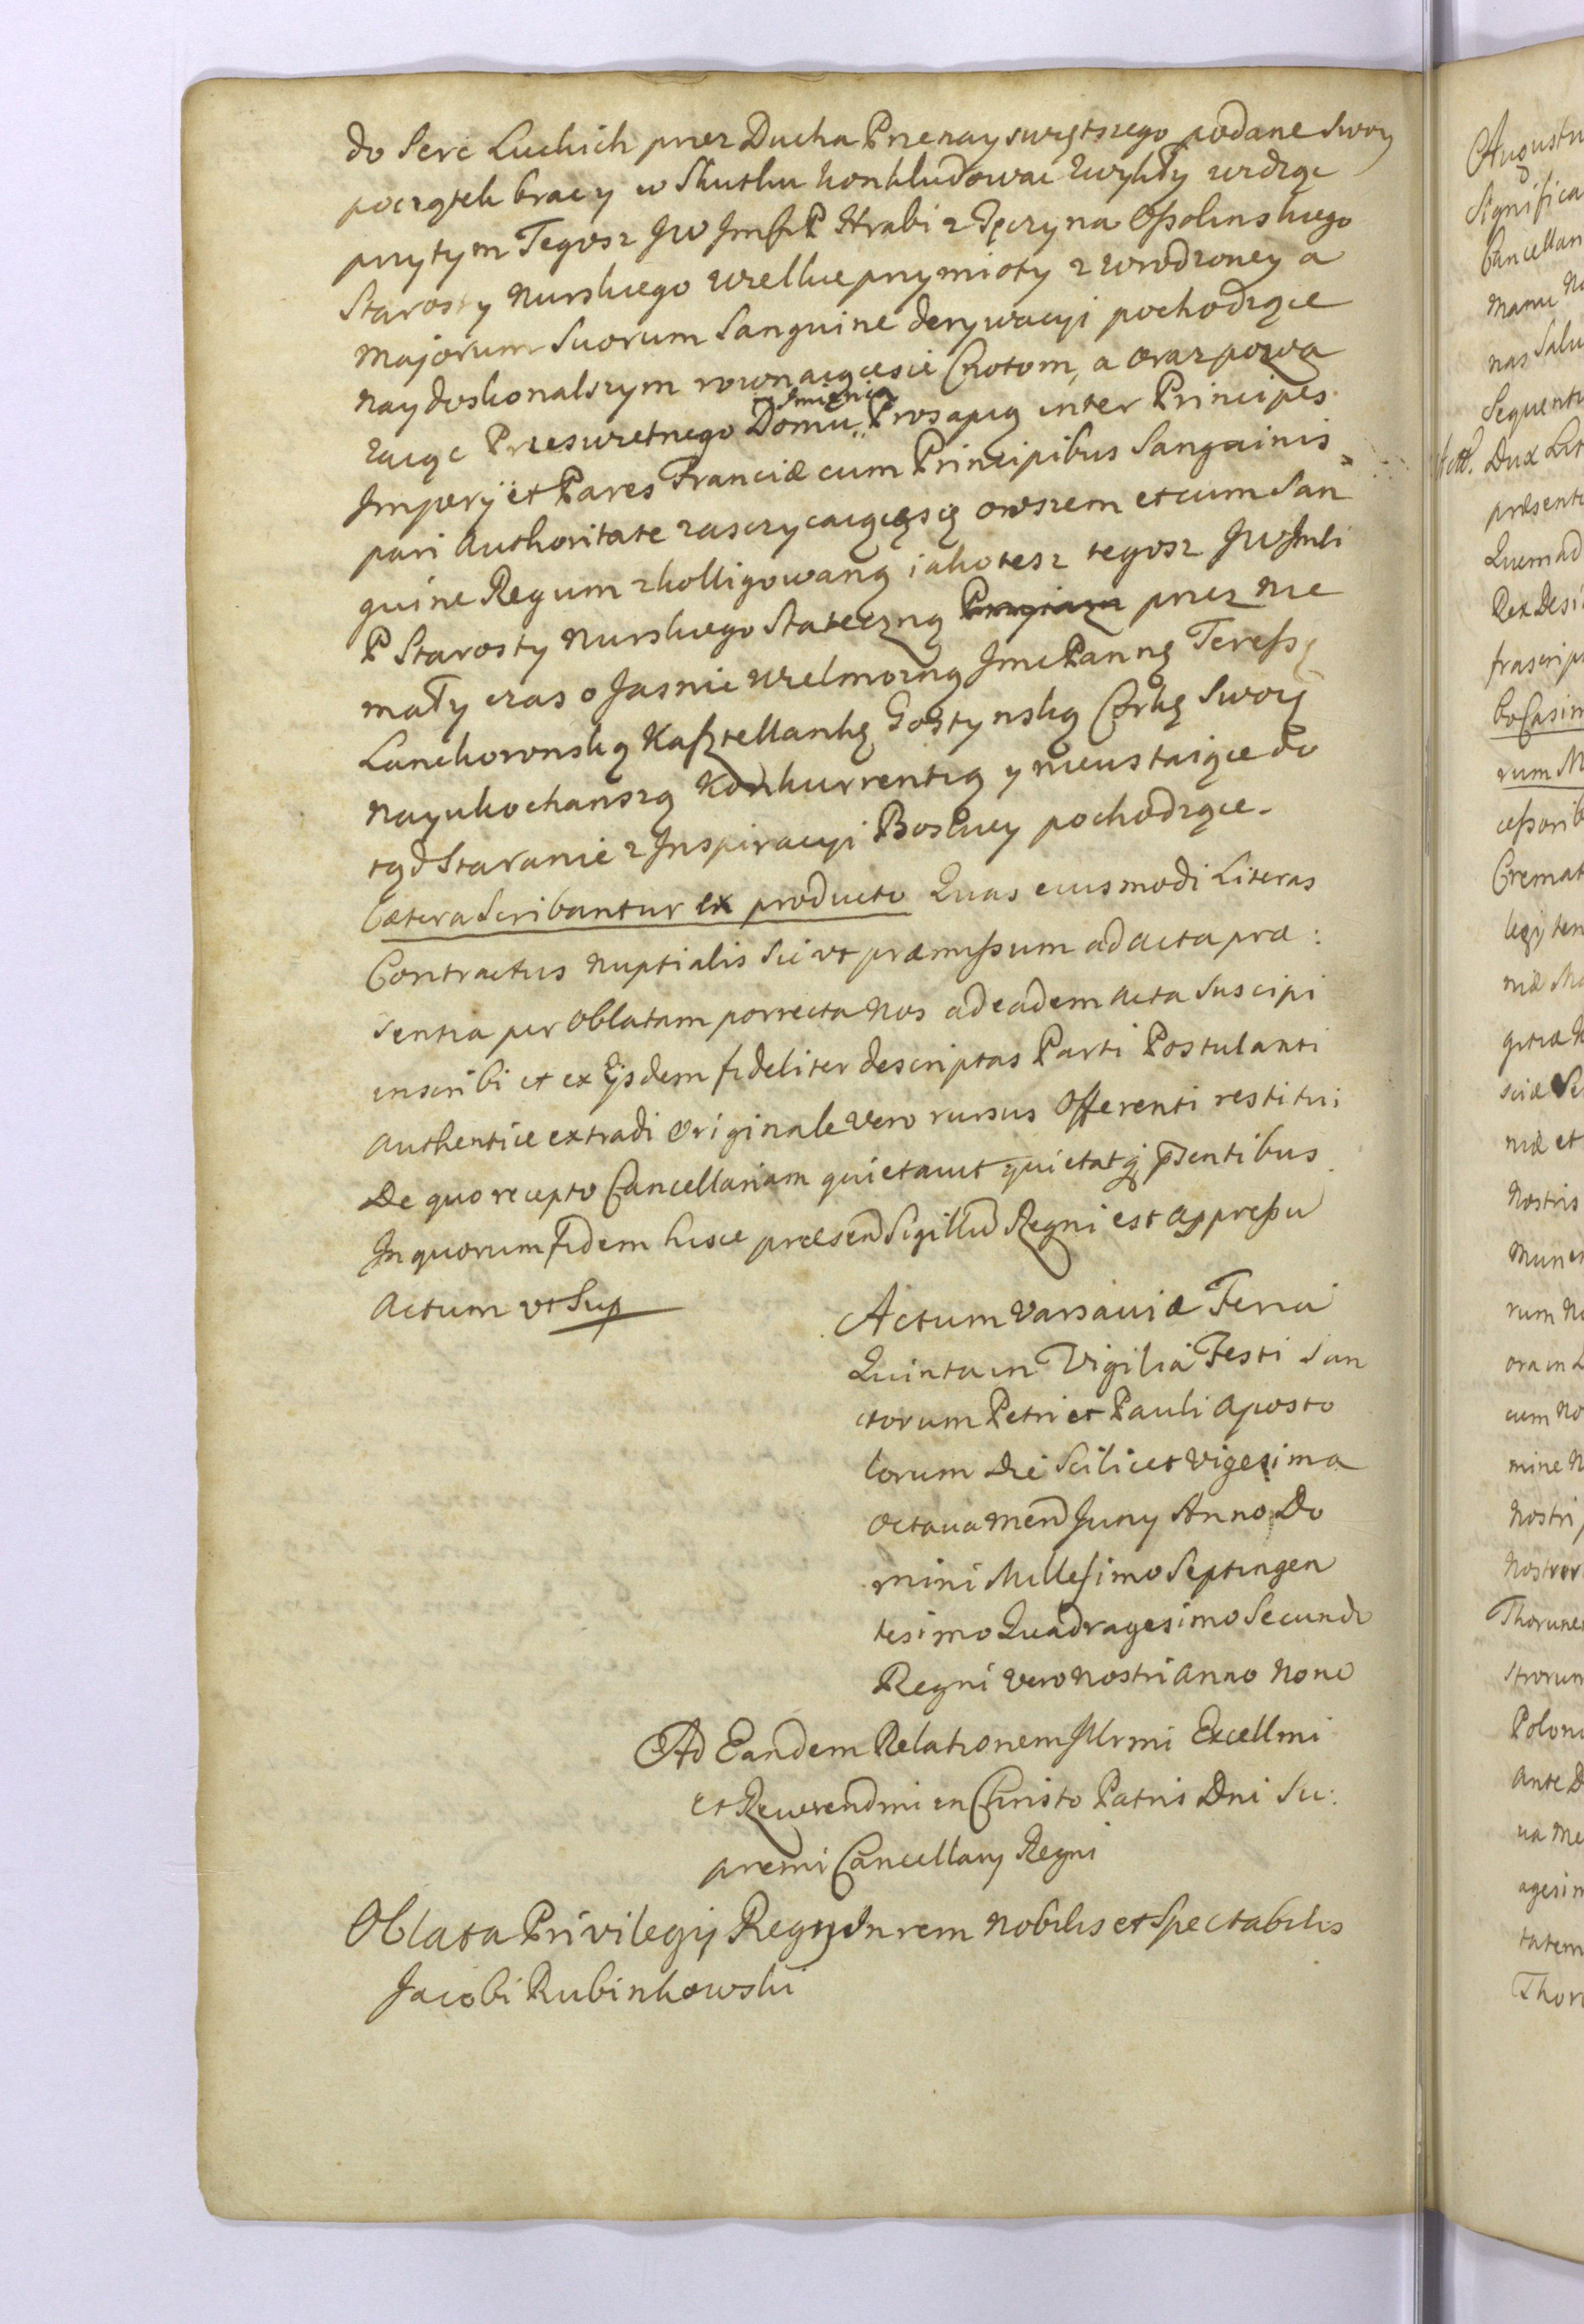 do Serc Luckich przez Ducha Przenayswiętszego podane Swoy
początek bracy w Skutku konkludować zwykły widząc
przytym Tegosz JW Jmśći P Hrabi z Tęczyna Ossolinskiego
Starosty Nurskiego wielkie przymioty z wrodzoney a
Majorum Suorum Sanguine derywacyi pochodzące
naydoskonalszym rownaiącesie Cnotom, a oraz powa
zaiąc Przeswietnego Domu Imienia Prosapią inter Principes
Imperÿ et Pares Franciæ cum Principibus Sanguinis
pari Authoritate zasczycaiącęsię owszem et cum San
guine Regum zkolligowaną iakotesz tegosz JW Jmści
P Starosty Nurskiego Stateczną przez nie
mały czas o Jasnie Wielmozną Jmc Pannę Teressę
Lanckoronską Kasztellankę Gostynską Corkę Swoię
Nayukochanszą Konkurrentią y nieustaiące do
tąd Staranie z Inspiracyi Boskiey pochodzące.
Cætera Scribantur ex producto Quas eiusmodi Literas
Contractus Nuptialis Sicut præmissum ad Acta præ:
sentia per Oblatam porrecta Nos ad eadem Acta Suscipi
inscribi et ex Ijsdem fideliter descriptas Parti Postulanti
Authentice extradi Originale Vero rursus Offerenti restitui
De quo recepto Cancellariam quietavit quietatq₃ p̄sentibus
In quorum fidem hisce præsen Sigillu Regni est appressu
Actum ut Sup
Actum Varsaviæ Feria
Quinta in Vigilia Festi San
ctorum Petri et Pauli Aposto
lorum Die Scilicet Vigesima
Octava Men Juny Anno Do
mini Millesimo Septingen
tesimo Quadragesimo Secundo
Regni Vero Nostri Anno Nono
Ad Eandem Relationem Illrmi Excellmi
et Reverendmi in Christo Patris Dni Su:
premi Cancellarij Regni
Oblata Privilegij Regij In rem Nobilis et Spectabilis
Jacobi Rubinkowski
Augustu
Significa
Cancellar
Manu No
nas Salu
Sequenti
Dux Lit
præsenti
Quem ad
Rex Desi
frascrip
bo Casim
rum M
cessorib
Cremat
legij ten
niæ et
Nostris
Mun
rum No
ora in L
cum No
mine N
Nostri
Nostror
Thorune
strorum
Polon
Ante D
ua Me
agesim
tatem
Thor